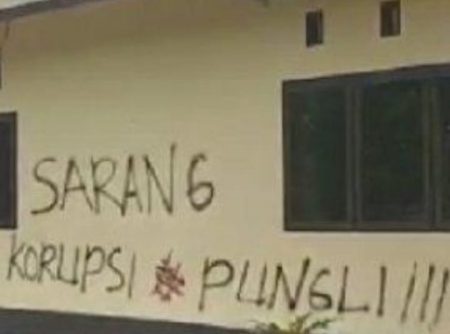 SARANG
KORUPSI & PUNGLI!!!